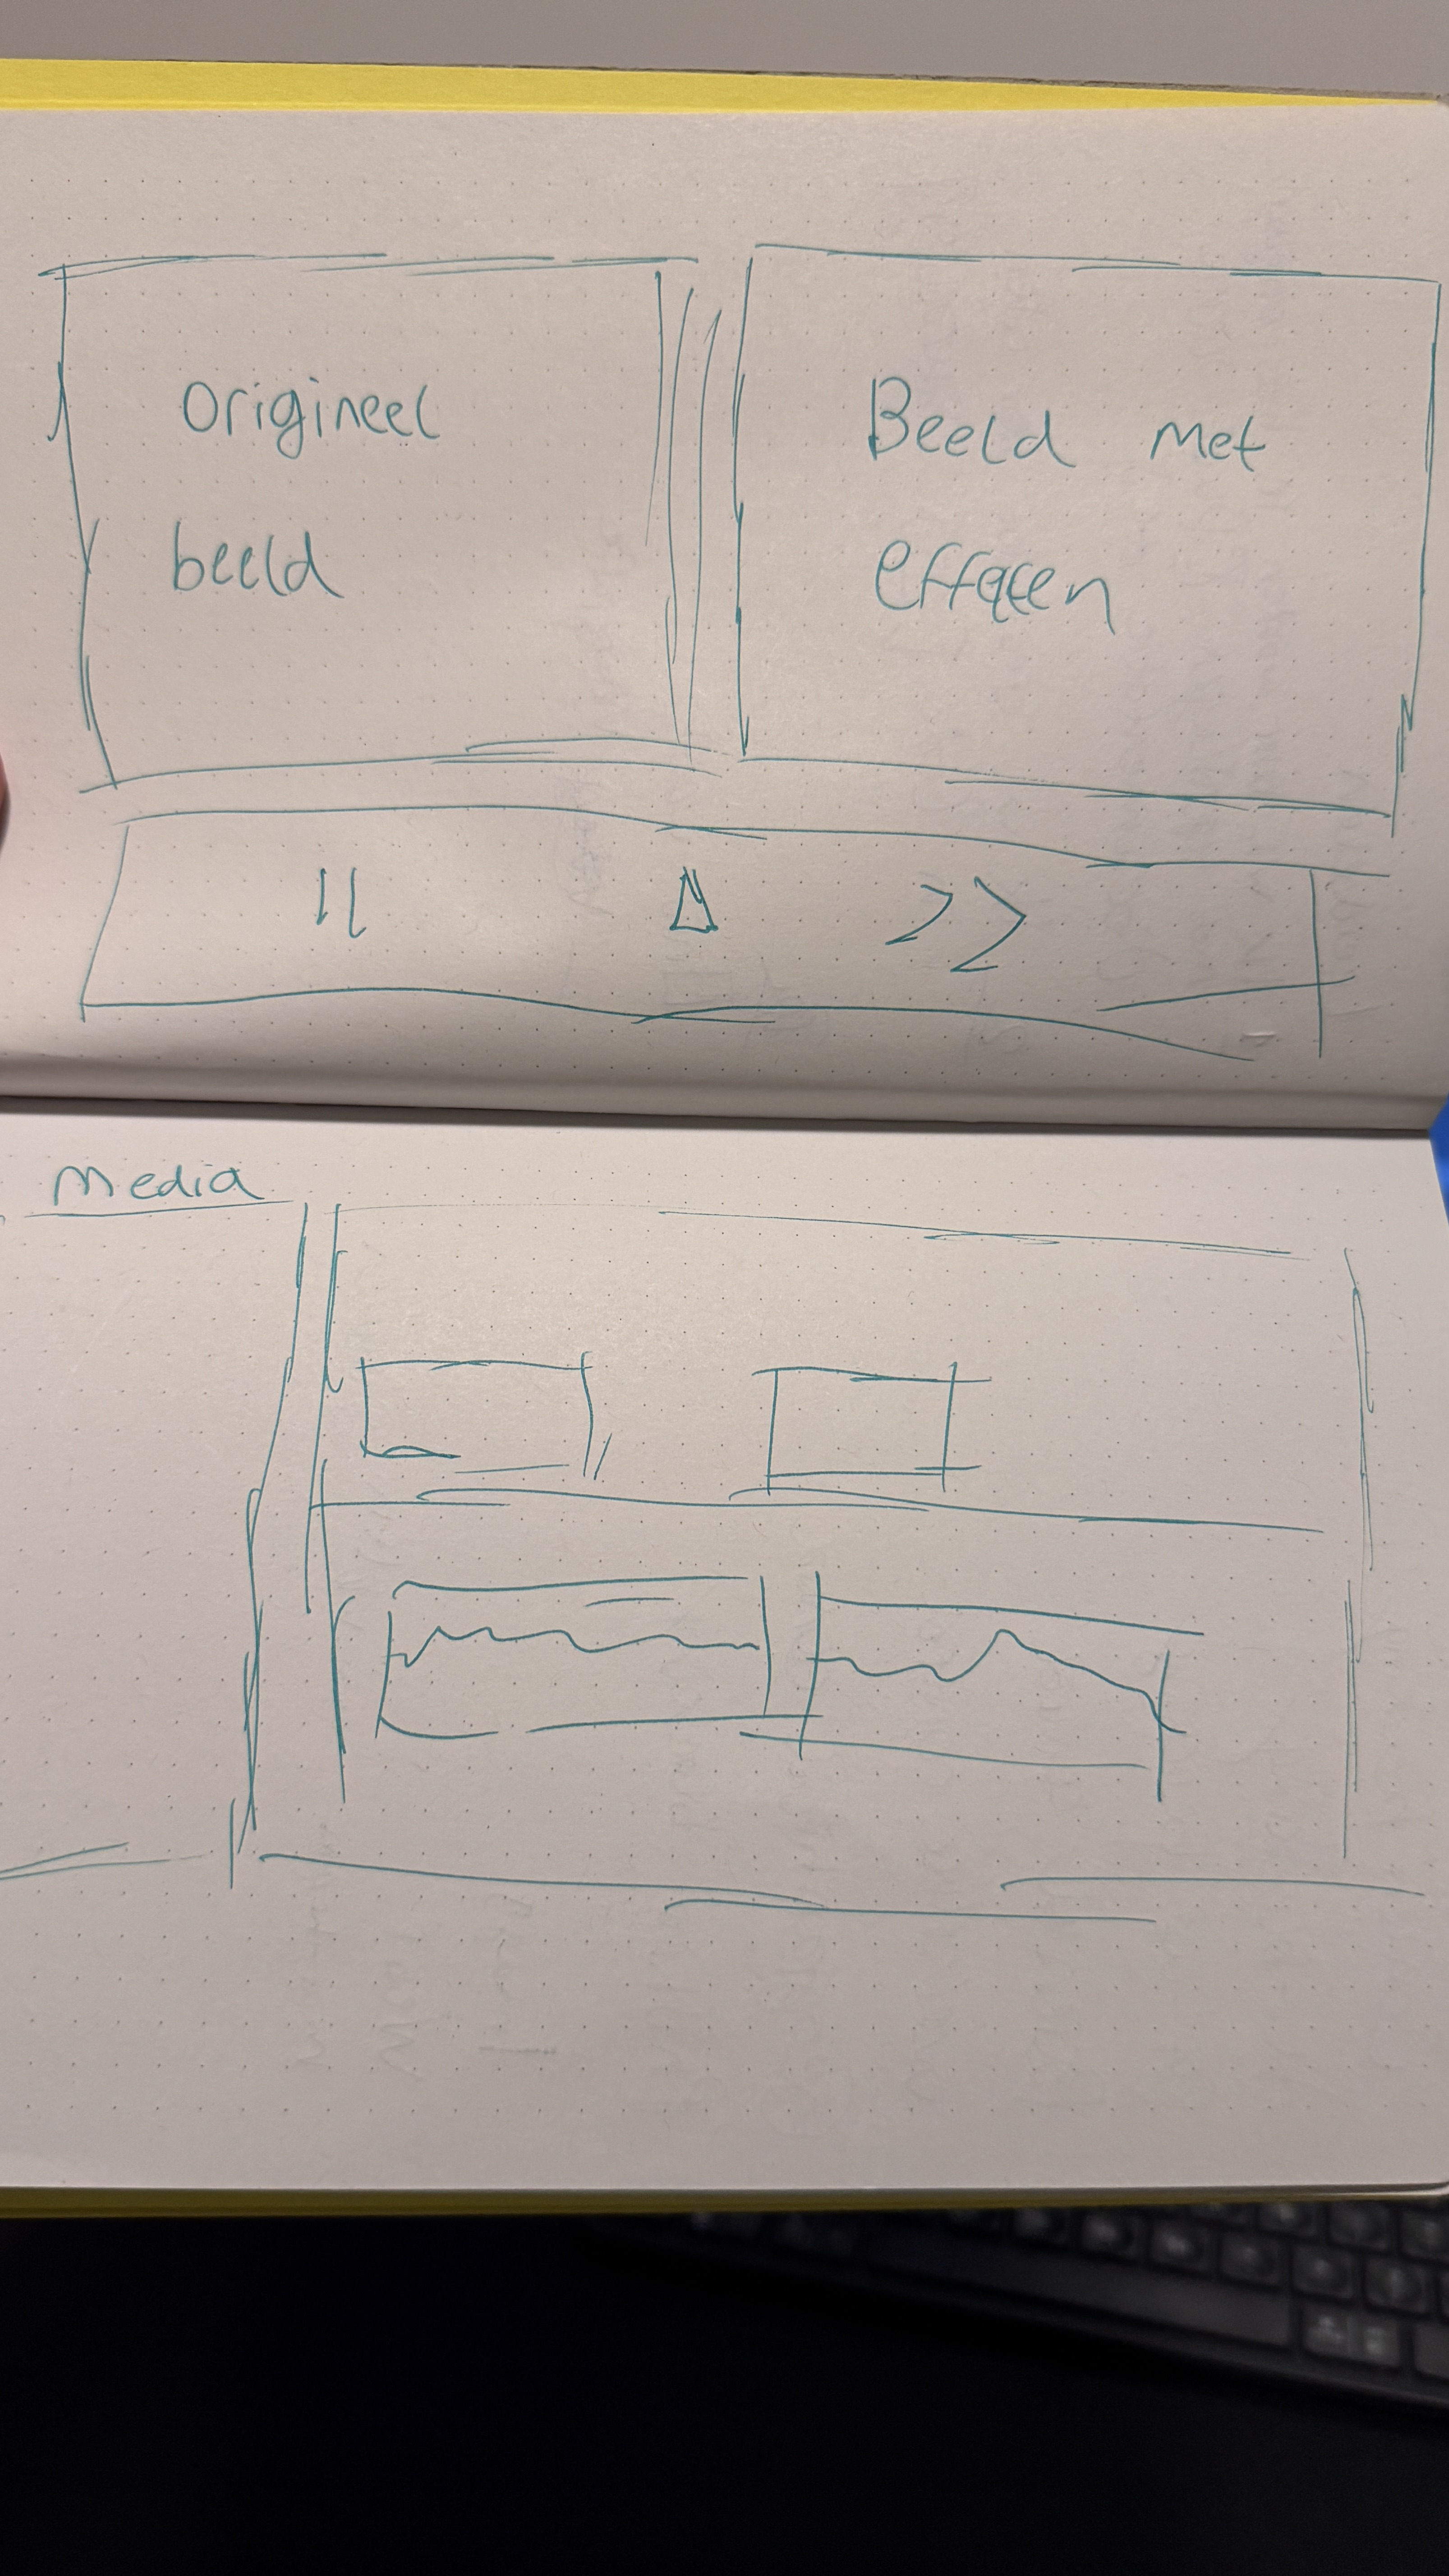 Origineel
beeld
Beeld met
effecten
II
>>
Media